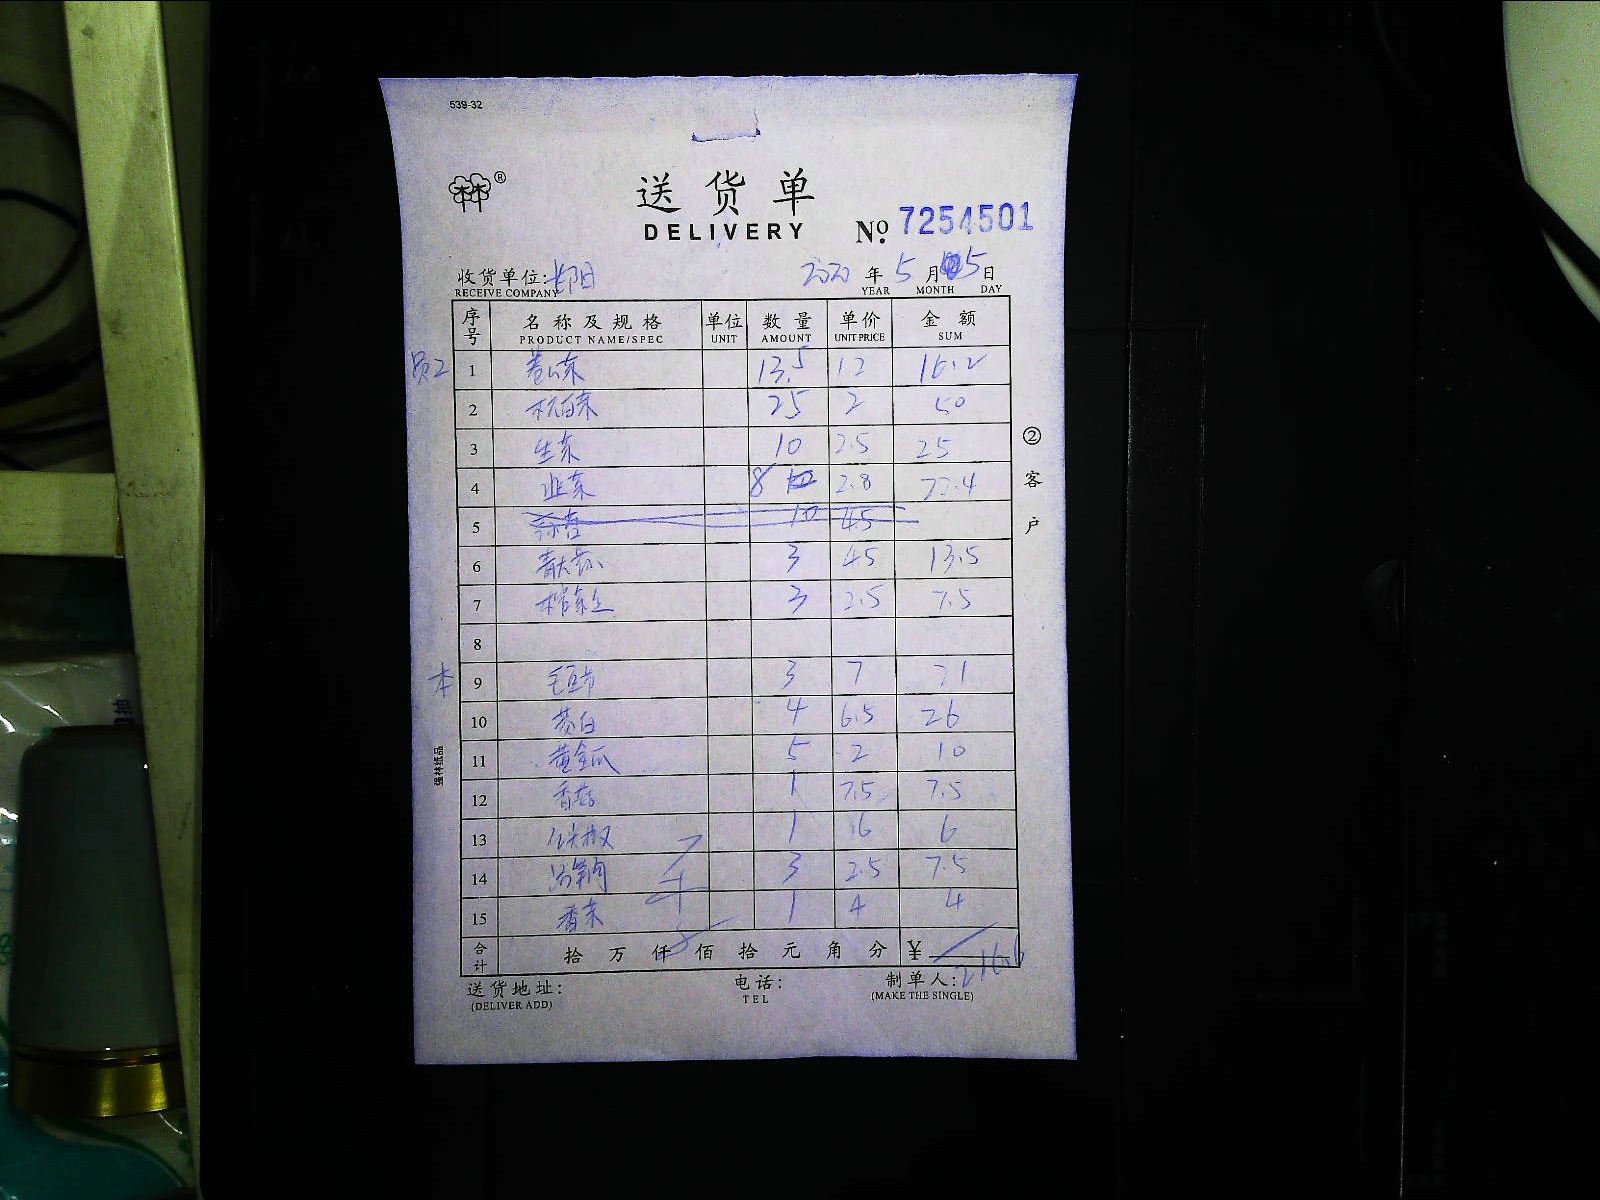 539-32
送货单
DELIVERY
№ 7254501
收货单位:
RECEIVE COMPANY
2020 年 5 月 5 日
YEAR MONTH DAY
序号 名称及规格 单位 数量 单价 金额
PRODUCT NAME/SPEC UNIT AMOUNT UNIT PRICE SUM
员工 1 卷心菜 13.5 12 16.2
2 杭白菜 25 2 50
3 生菜 10 2.5 25
4 韭菜 8 2.8 22.4
5 10 4.5
6 青大蒜 3 4.5 13.5
7 榨菜丝 3 2.5 7.5
8
本 9 毛豆节 3 7 21
10 茭白 4 6.5 26
11 黄金瓜 5 2 10
12 香菇 1 7.5 7.5
13 尖椒 1 6 6
14 莴笋 3 2.5 7.5
15 香菜 1 4 4
合计 拾 万 仟 佰 拾 元 角 分 ¥ 216.6
送货地址: 电话: 制单人:
(DELIVER ADD) TEL (MAKE THE SINGLE)
②客户
强林纸品